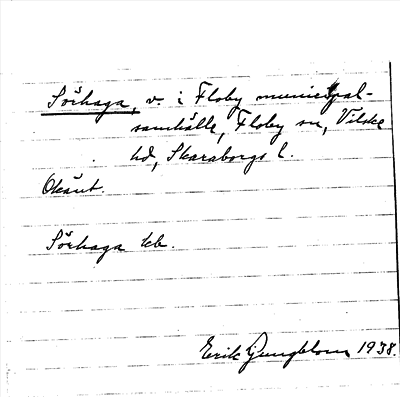 Sörhaga, v. i Floby municipal-
samhälle, Floby sn, Vilske
hd, Skaraborgs l.
Okänt.
Sörhaga kb.
Erik Ljungblom 1938.